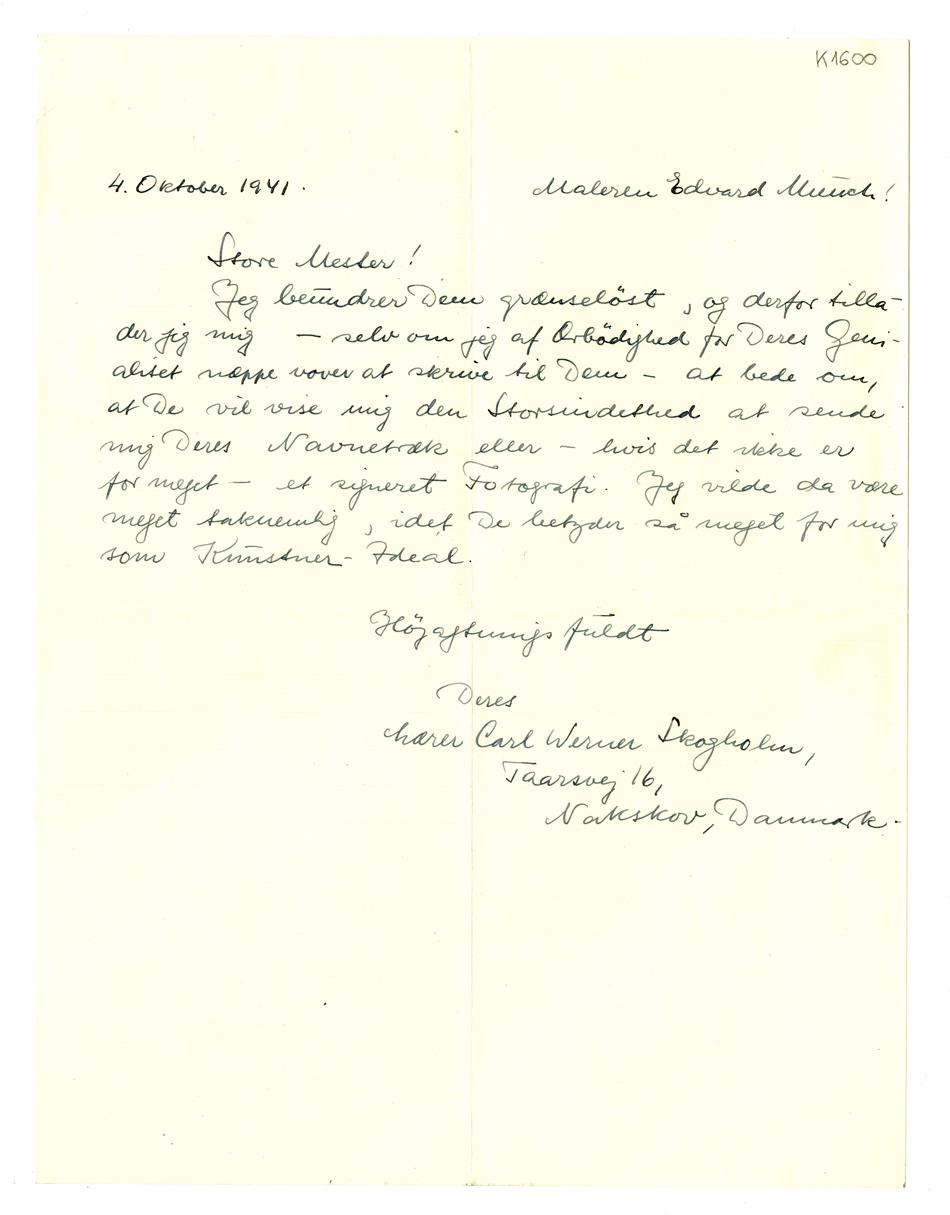 K1600
4. Oktober 1941.
Maleren Edvard Munch!
Store Mester!
Jeg beundrer Dem grænselöst, og derfor tilla-
der jeg mig – selv om jeg af Ærbödighed for Deres Geni-
alitet næppe vover at skrive til Dem – at bede om,
at De vil vise mig den Storsindethed at sende
mig Deres Navnetræk eller – hvis det ikke er
for meget – et signeret Fotografi. Jeg vilde da være
meget taknemlig, idet De betyder så meget for mig
som Kunstner-Ideal.
Höjagtungsfuldt
Deres
Lærer Carl Werner Skogholm,
Taarsvej 16,
Nakskov, Danmark.